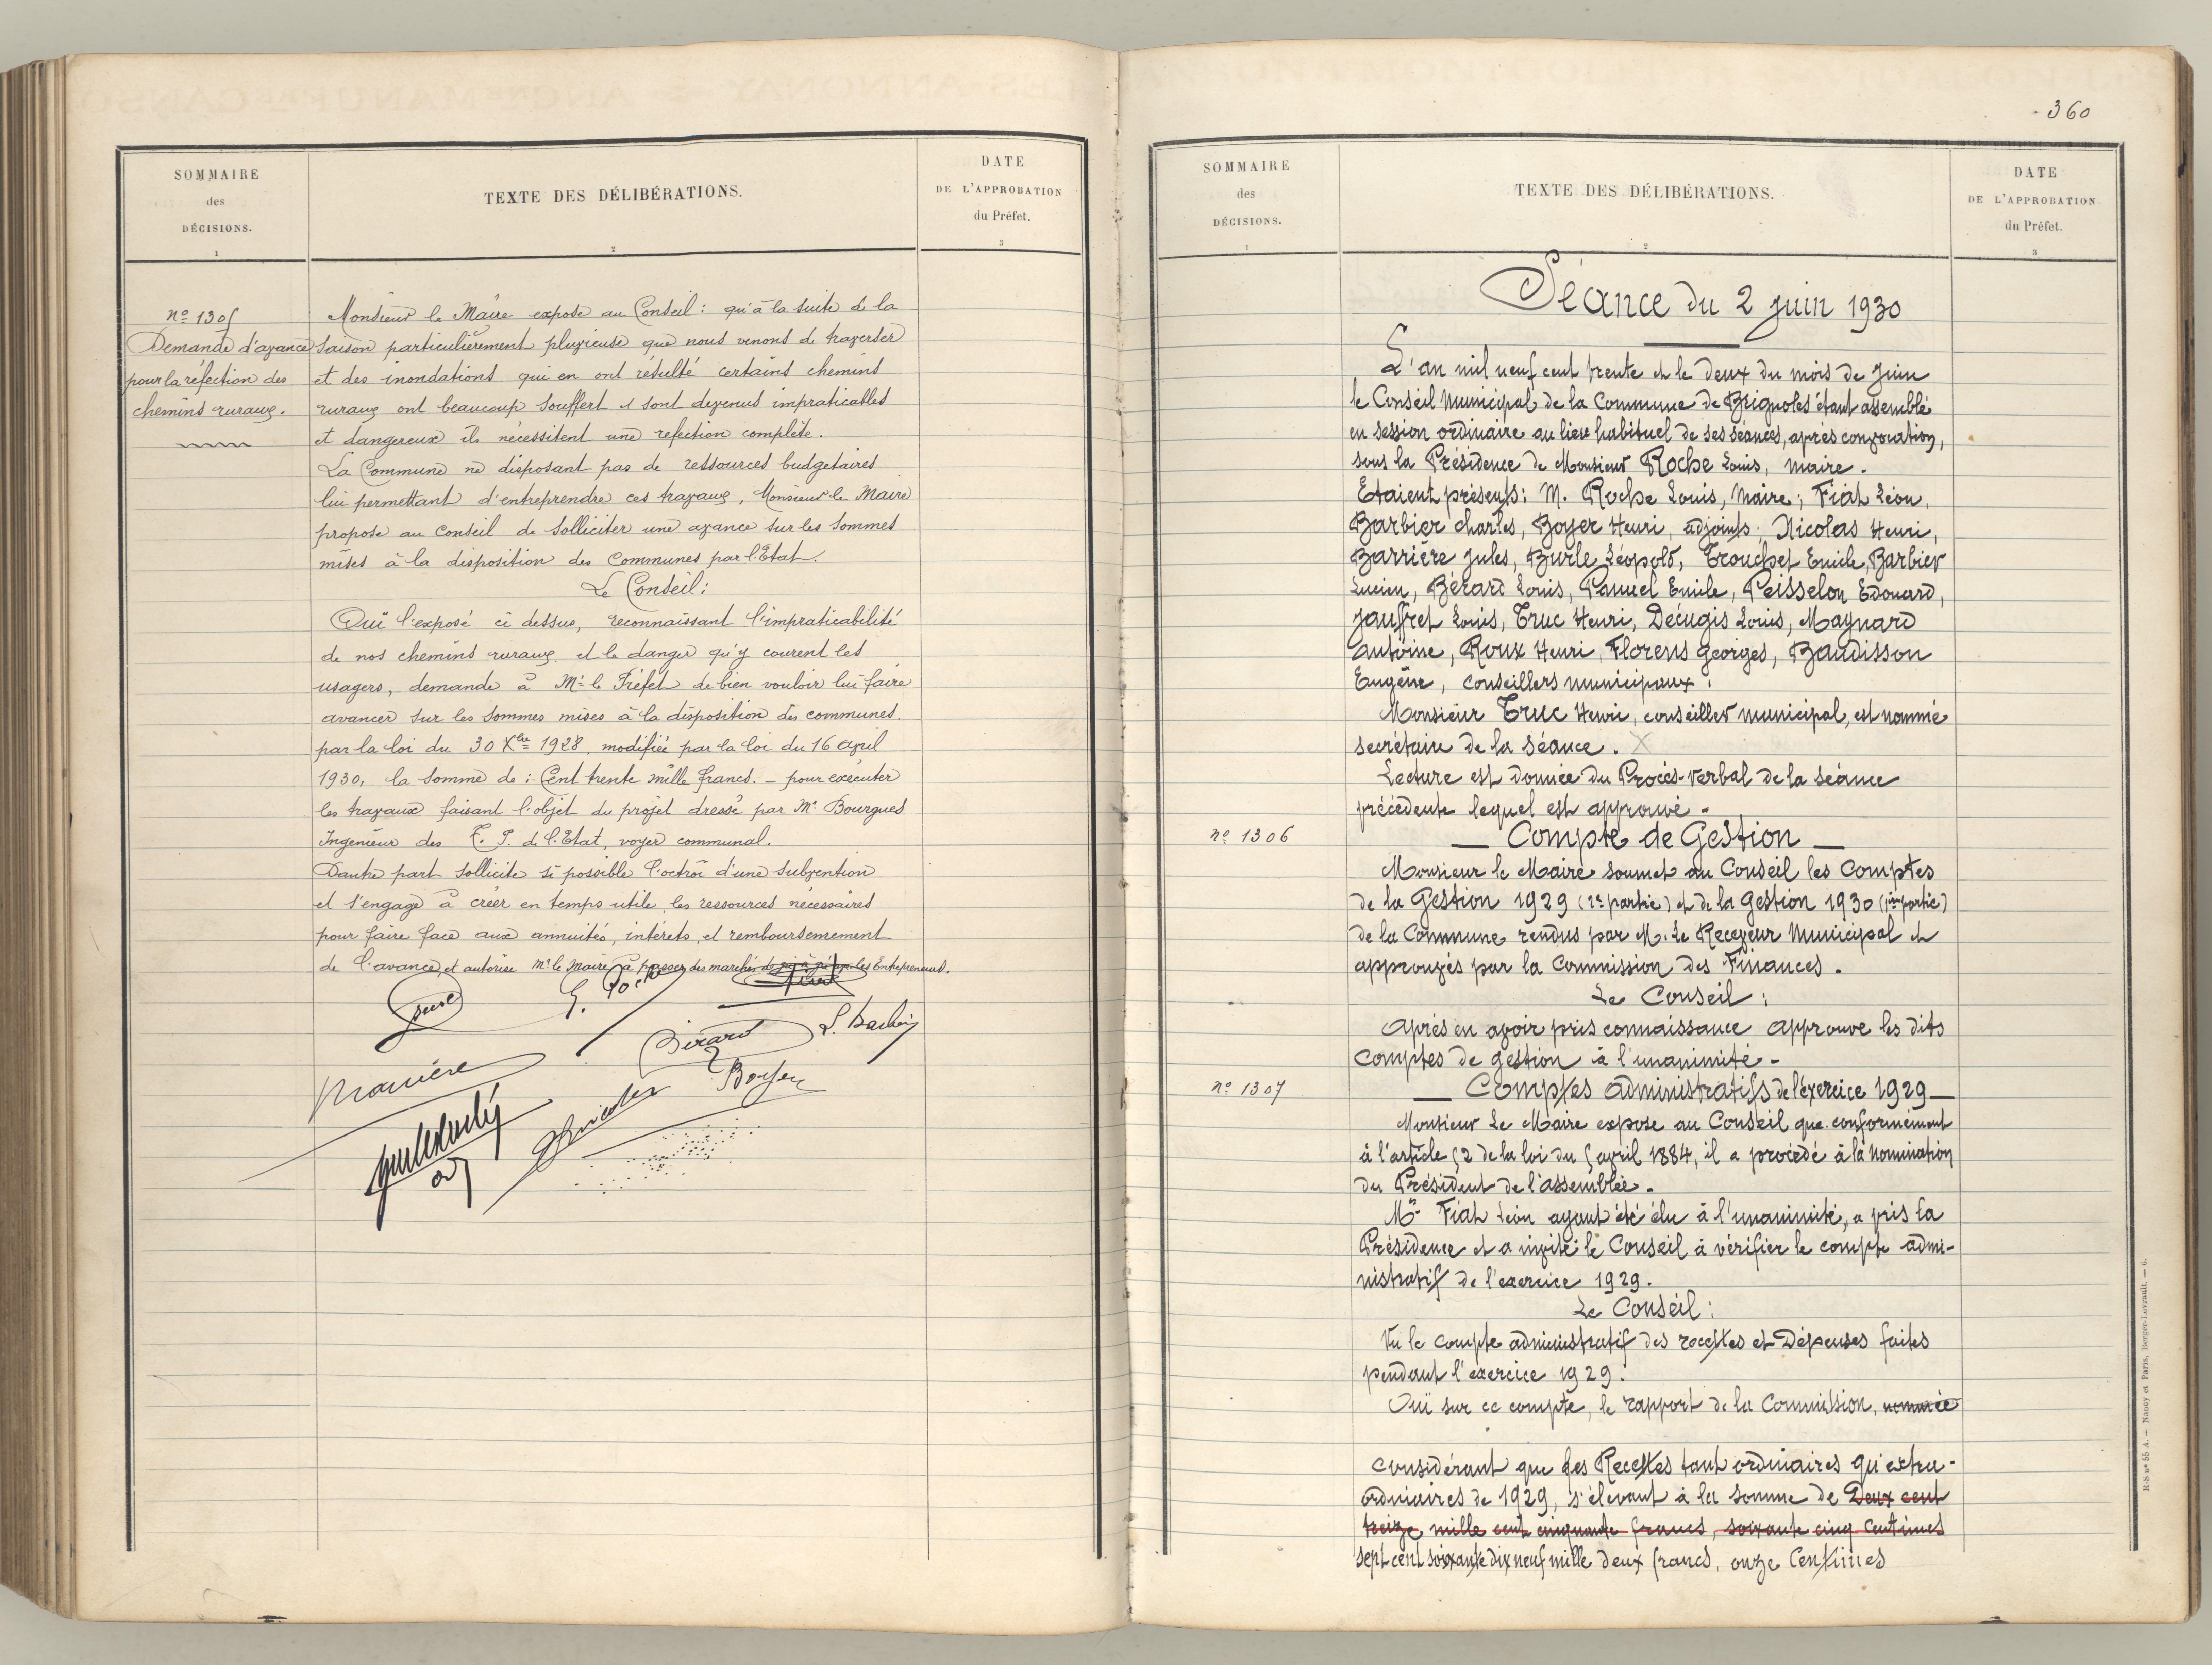 SOMMAIRE
des
DÉCISIONS.
1
TEXTE DES DÉLIBÉRATIONS.
2
DATE
DE L'APPROBATION
du Préfet.
3
nº 1305
Demande d'avance
pour la réfection des
chemins ruraux.
Monsieur le Maire expose au Conseil : qu'à la suite de la
saison particulièrement pluvieuse que nous venons de traverser
et des inondations qui en ont résulté certains chemins
ruraux ont beaucoup souffert et sont devenus impraticables
et dangereux ils nécessitent une refection complète.
La Commune ne disposant pas de ressources budgetaires
lui permettant d'entreprendre ces travaux, Monsieur le Maire
propose au Conseil de solliciter une avance sur les sommes
mises à la disposition des Communes par l'Etat.
Le Conseil :
Ouï l'exposé ci dessus, reconnaissant l'impraticabilité
de nos chemins ruraux et le danger qu'y courent les
usagers, demande à Mr le Préfet de bien vouloir lui faire
avancer sur les sommes mises à la disposition des communes.
par la loi du 30 Xbre 1928, modifiée par la loi du 16 avril
1930, la somme de : Cent trente mille francs. – pour exécuter
les travaux faisant l'objet du projet dressé par Mr Bourgues
Ingénieur des T. P. de l'Etat, voyer communal.
Dautre part sollicite si possible l'octroi d'une subvention
et s'engage à créer en temps utile, les ressources nécessaires
pour faire face aux annuités, intérêts, et remboursemement
de l'avance, et autorise Mr le Maire à passer des marchés de gré à gré les Entrepreneurs.
L. Roche
Bérard
L. Barbier
Boyer
Nicolas
360
SOMMAIRE
des
DÉCISIONS.
1
TEXTE DES DÉLIBÉRATIONS.
2
DATE
DE L'APPROBATION
du Préfet.
3
Séance du 2 juin 1930
L'an mil neuf cent trente et le deux du mois de Juin
le Conseil Municipal de la Commune de Brignoles étant assemblé
en session ordinaire au lieu habituel de ses séances, après convocation,
sous la Présidence de Monsieur Roche Louis, maire.
Etaient présents : M. Roche Louis, Maire ; Fiat Léon,
Barbier Charles, Boyer Henri, adjoints ; Nicolas Henri,
Barrière Jules, Burle Léopold, Trouchet Emile, Barbier
Lucien, Bérard Louis, Panuel Emile, Peisselon Edouard,
Jauffret Louis, Truc Henri, Décugis Louis, Maynard
Antoine, Roux Henri, Florens Georges, Baudisson
Eugène, Conseillers municipaux.
Monsieur Truc Henri, conseiller municipal, est nommé
secrétaire de la séance. X
Lecture est donnée du Procès-verbal de la séance
précédente lequel est approuvé -
nº 1306
— Compte de Gestion —
Monsieur le Maire soumet au Conseil les Comptes
de la Gestion 1929 (2e partie) et de la Gestion 1930 (1ère partie)
de la Commune rendus par M. Le Receveur Municipal et
approuvés par la Commission des Finances.
Le Conseil :
Après en avoir pris connaissance approuve les dits
comptes de gestion à l'unanimité -
nº 1307
— Comptes administratifs de l'exercice 1929 —
Monsieur Le Maire expose au Conseil que conformément
à l'article 52 de la loi du 5 avril 1884, il a procédé à la nomination
du Président de l'assemblée.
Mr Fiat Léon ayant été élu à l'unanimité, a pris la
Présidence et a invité le Conseil à vérifier le compte admi-
nistratif de l'exercice 1929.
Le Conseil :
Vu le compte administratif des recettes et Dépenses faites
pendant l'exercice 1929.
Ouï sur ce compte, le rapport de la Commission, nommée
Considérant que les Recettes tant ordinaires qu'extra-
ordinaires de 1929, s'élevant à la somme de Deux cent
treize mille cent cinquante francs, soixante cinq centimes
sept cent soixante dix neuf mille deux francs, onze Centimes
R-S nº 55 A. — Nancy et Paris, Berger-Levrault. — 6.